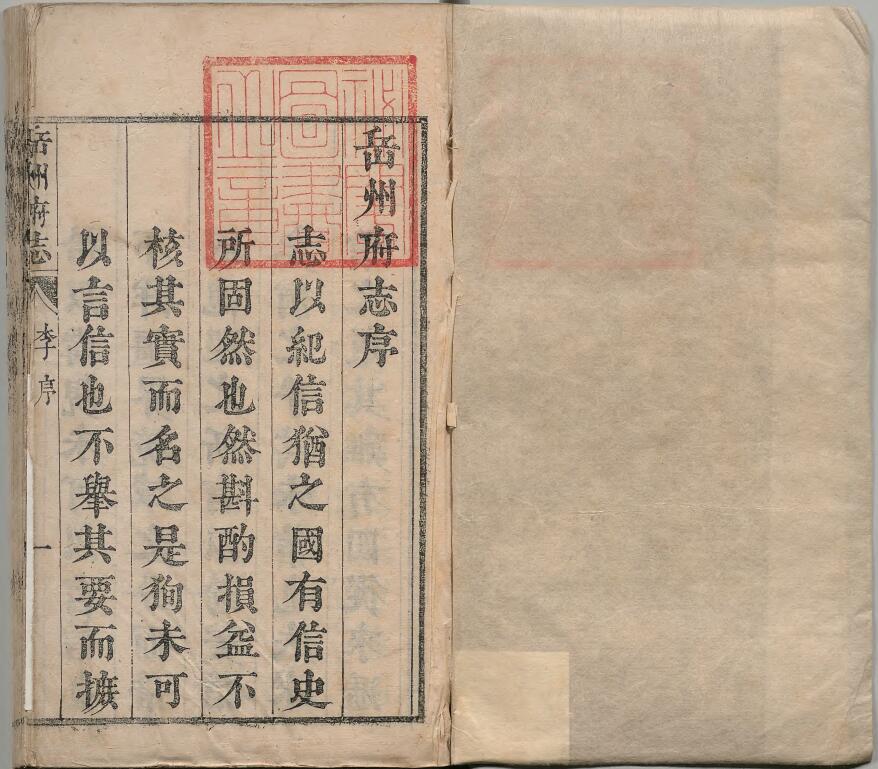 岳州府志序
志以紀信猶之國有信史
所固然也然斟酌損益不
核其實而名之是狥未可
以言信也不舉其要而摭
岳州府志
李序
一